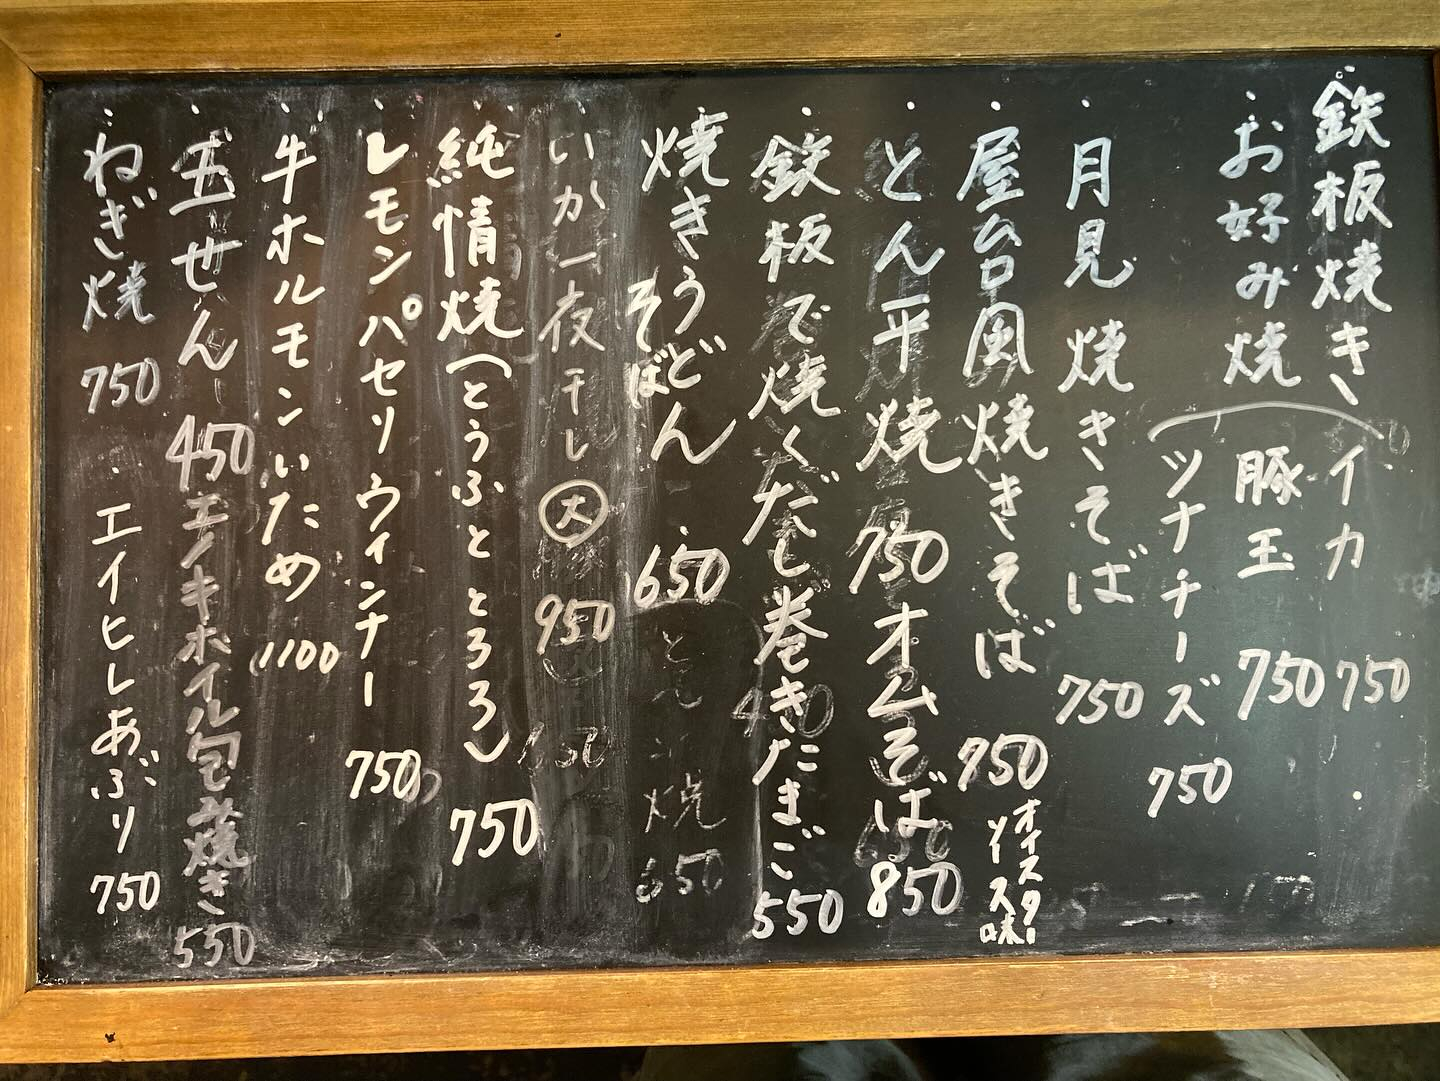 鉄板焼き
お好み焼
イカ 750
豚玉 750
ツナチーズ 750
月見焼きそば 750
屋台風焼きそば 750
オイスター
ソース味
とん平焼 750
オムそば 850
鉄板で焼くだし巻きたまご 550
焼きうどん 650
そば
いか一夜干し 大 950
純情焼(とうふととろろ) 750
レモンパセリウィンナー 750
牛ホルモンいため 1100
玉せん 450
エノキホイル包み焼き 550
ねぎ焼 750
エイヒレあぶり 750